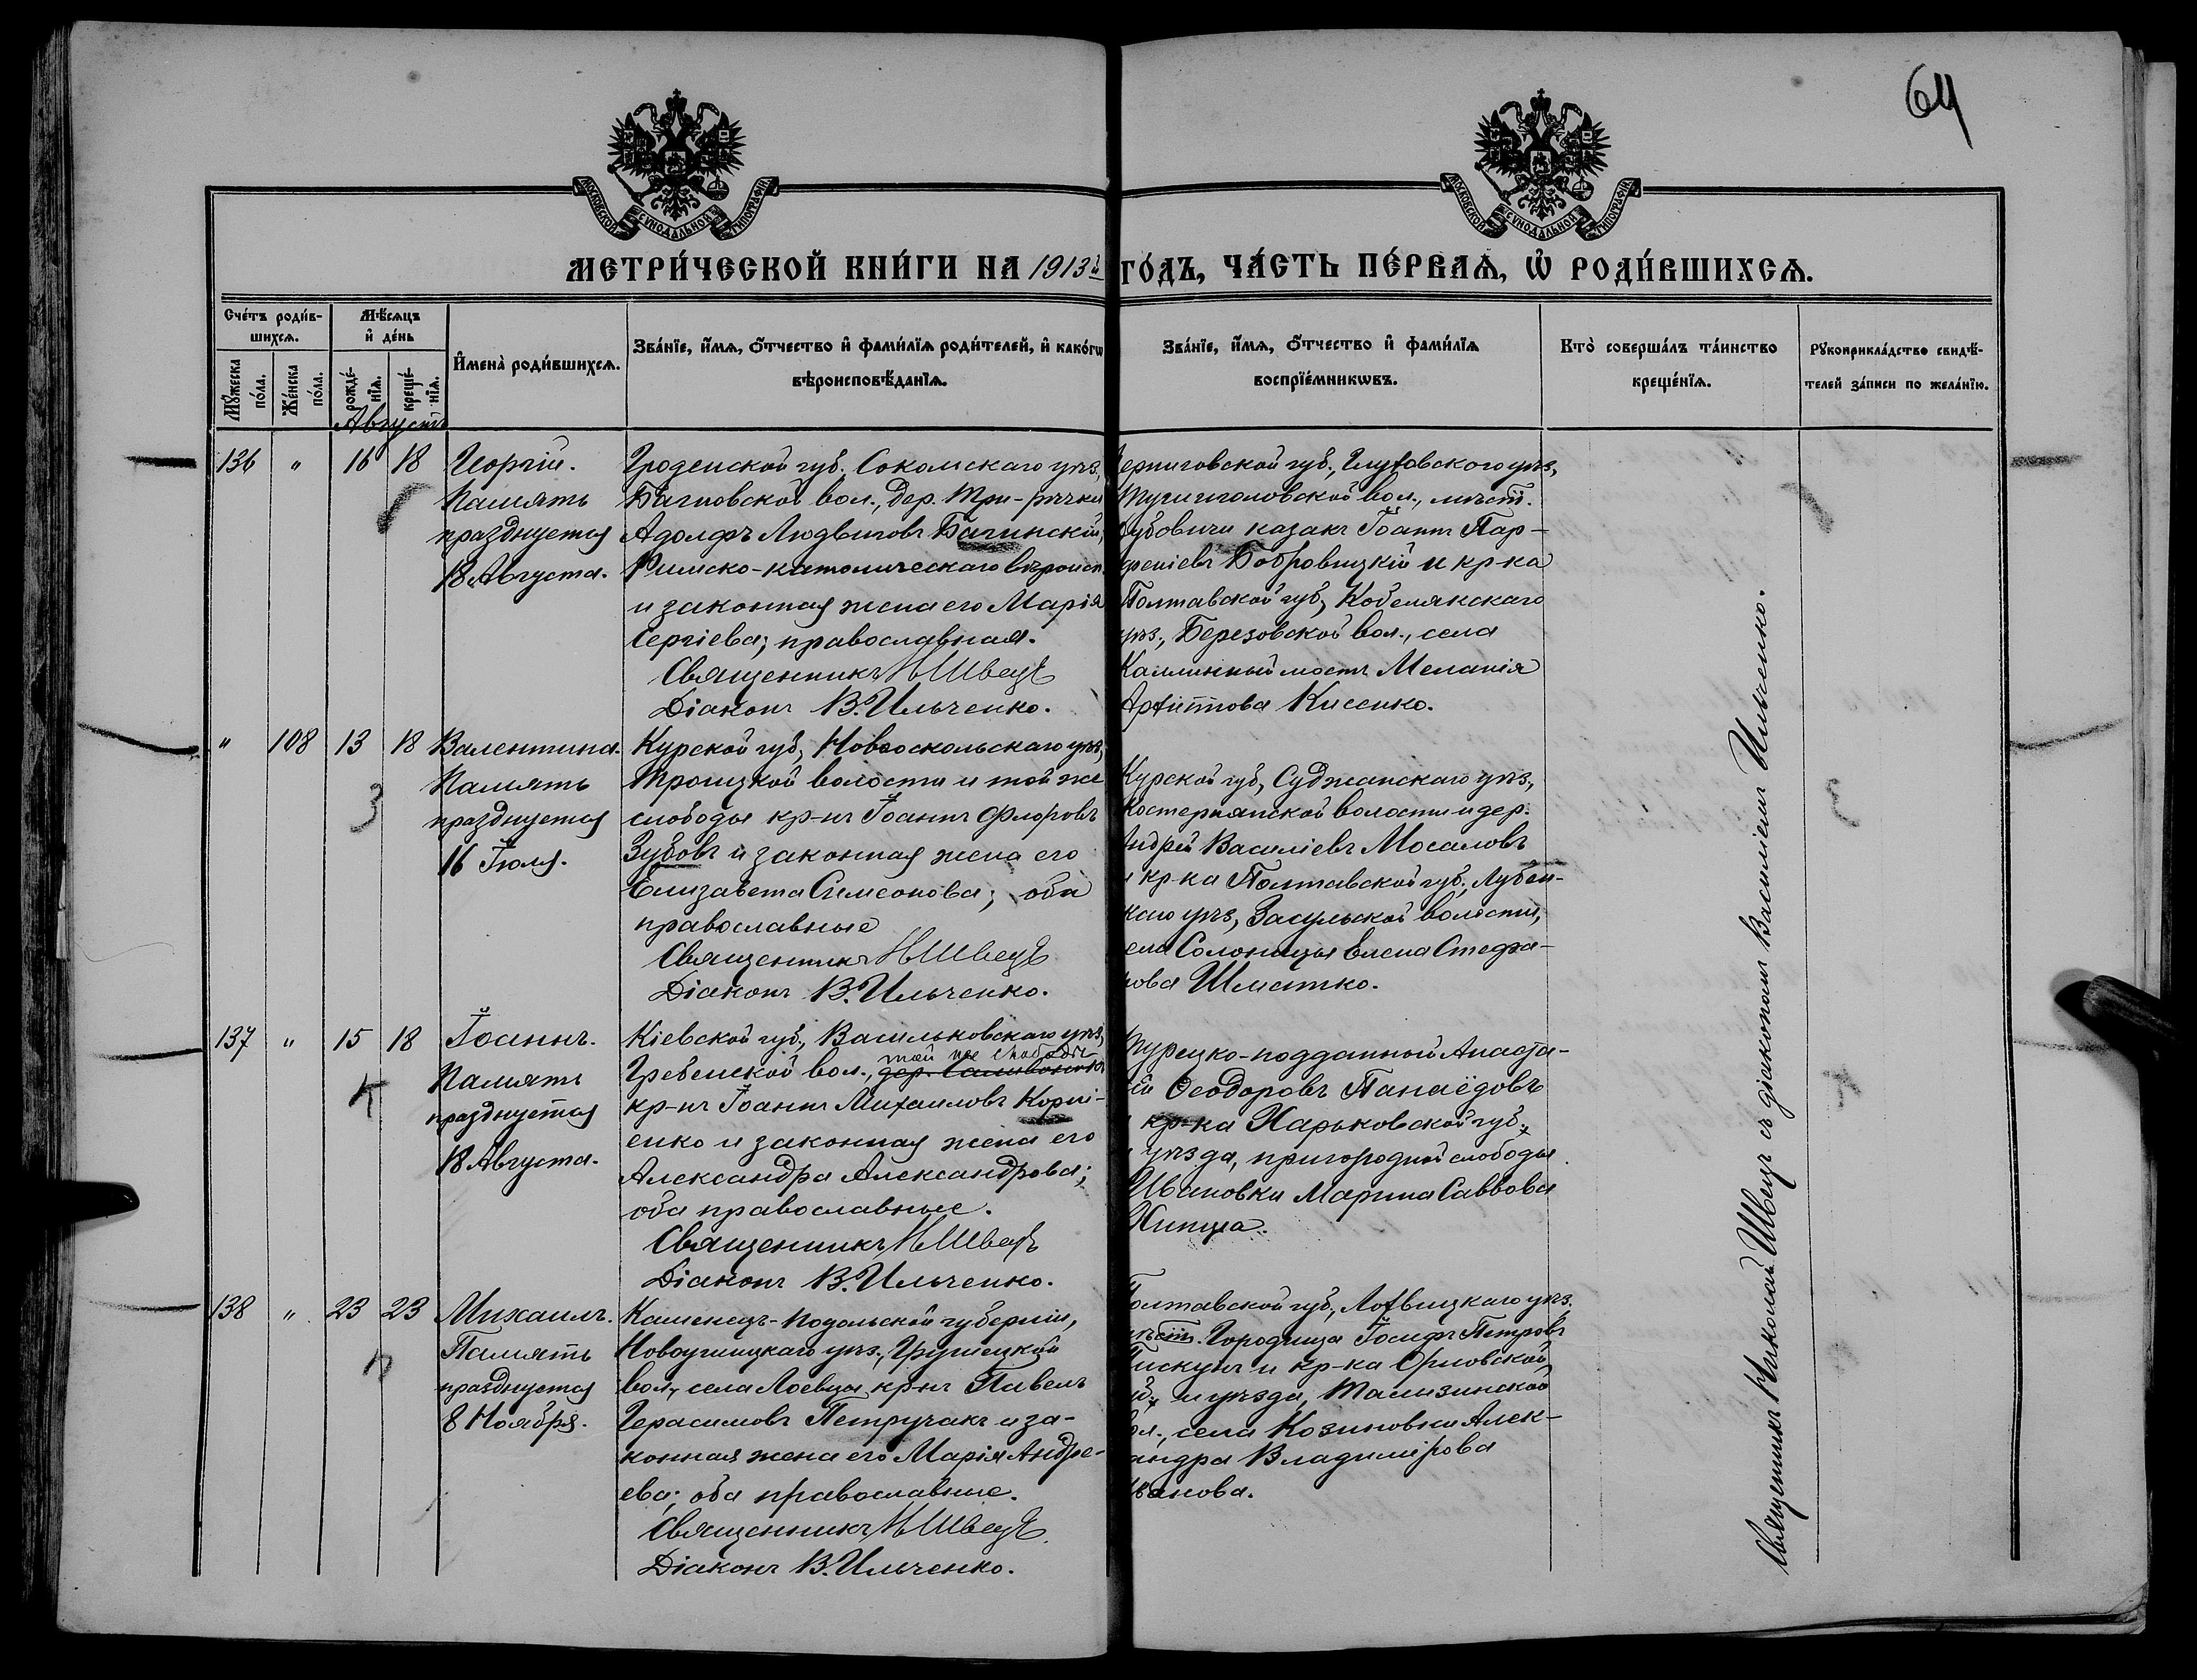 64
МОСКОВСКОЙ СѴНОДАЛЬНОЙ ТИПОГРАФІИ
МОСКОВСКОЙ СѴНОДАЛЬНОЙ ТИПОГРАФІИ
МЕТРИ́ЧЕСКОЙ КНИ́ГИ НА 1913й ГО́ДЪ, ЧА́СТЬ ПЕ́РВАѦ, Ѡ҆ РОДИ́ВШИХСѦ.
Сче́тъ роди́в-
шихсѧ.
Мꙋ́жеска по́ла.
Же́нска по́ла.
Мѣ́сѧцъ
и҆ де́нь
рожде́-
нїѧ.
креще́-
нїѧ.
И҆мена̀ роди́вшихсѧ.
Зва́нїе, и҆́мѧ, ѻ҆́тчество и҆ фами́лїѧ роди́телей, и҆ како́гѡ
вѣроисповѣ́данїѧ.
Зва́нїе, и҆́мѧ, ѻ҆́тчество и҆ фами́лїѧ
воспрїе́мникѡвъ.
Кто̀ соверша́лъ та́инство
креще́нїѧ.
Рꙋкоприкла́дство свидѣ́-
телей за́писи по жела́нїю.
Августъ
136 " 16 18
Георгій.
Память
празднуется
18 Августа.
Гродненской губ. Сокольскаго уѣз.,
Багновской вол., дер. Три-рѣчки
Адолфъ Людвиговъ Багинскій,
Римско-католическаго вѣроисп.
и законная жена его Марія
Сергіева; православная.
Священникъ Н Швецъ
Діаконъ В. Ильченко.
Черниговской губ., Глуховского уѣз,
Тулиголовской вол., мѣст.
Дубовичи казакъ Іоаннъ Пар-
феніевъ Бобровицкій и кр-ка
Полтавской губ, Кобелякскаго
уѣз., Березовской вол., села
Каллинный мостъ Меланія
Архиппова Кисенко.
" 108 13 18
Валентина.
Память
празднуется
16 Іюля.
З
Курской губ, Новооскольскаго уѣз,
Троицкой волости и той же
слободы кр-нъ Іоаннъ Флоровъ
Зубовъ и законная жена его
Елизавета Симеонова; оба
православные
Священникъ Н Швецъ
Діаконъ В. Ильченко.
Курской губ, Суджанскаго уѣз,
Костерянской волости и дер.
Андрей Василіевъ Мосаловъ
и кр-ка Полтавской губ, Лубен-
скаго уѣз, Засульской волости,
села Солоницы Елена Стефа-
нова Шматко.
137 " 15 18
Іоаннъ.
Память
празднуется
18 Августа.
К
Кіевской губ, Васильковскаго уѣз,
Гребенской вол., той же слободы
кр-нъ Іоаннъ Михаиловъ Корні-
енко и законная жена его
Александра Александрова;
оба православные.
Священникъ Н Швецъ
Діаконъ В. Ильченко.
Турецко-подданный Анаста-
сій Ѳеодоровъ Панаёдовъ
и кр-ка Харьковской губ.
и уѣзда, пригородной слободы
Ивановки Марина Саввова
Хипца.
138 " 23 23
Михаилъ.
Память
празднуется
8 Ноября.
п
Каменецъ-Подольской губерніи,
Новоушицкаго уѣз., Грушецкой
вол, села Лоевца, кр-нъ Павелъ
Герасимовъ Петручакъ и за-
конная жена его Марія Андре-
ева; оба православные.
Священникъ Н Швецъ.
Діаконъ В. Ильченко.
Полтавской губ, Лохвицкаго уѣз.
мѣст. Городища Іосифъ Петровъ
Пискунъ и кр-ка Орловской
губ. и уѣзда, Тализинской
вол., села Козиновки Алек-
сандра Владимірова
Иванова.
Священникъ Николай Швецъ съ діакономъ Василіемъ Ильченко.